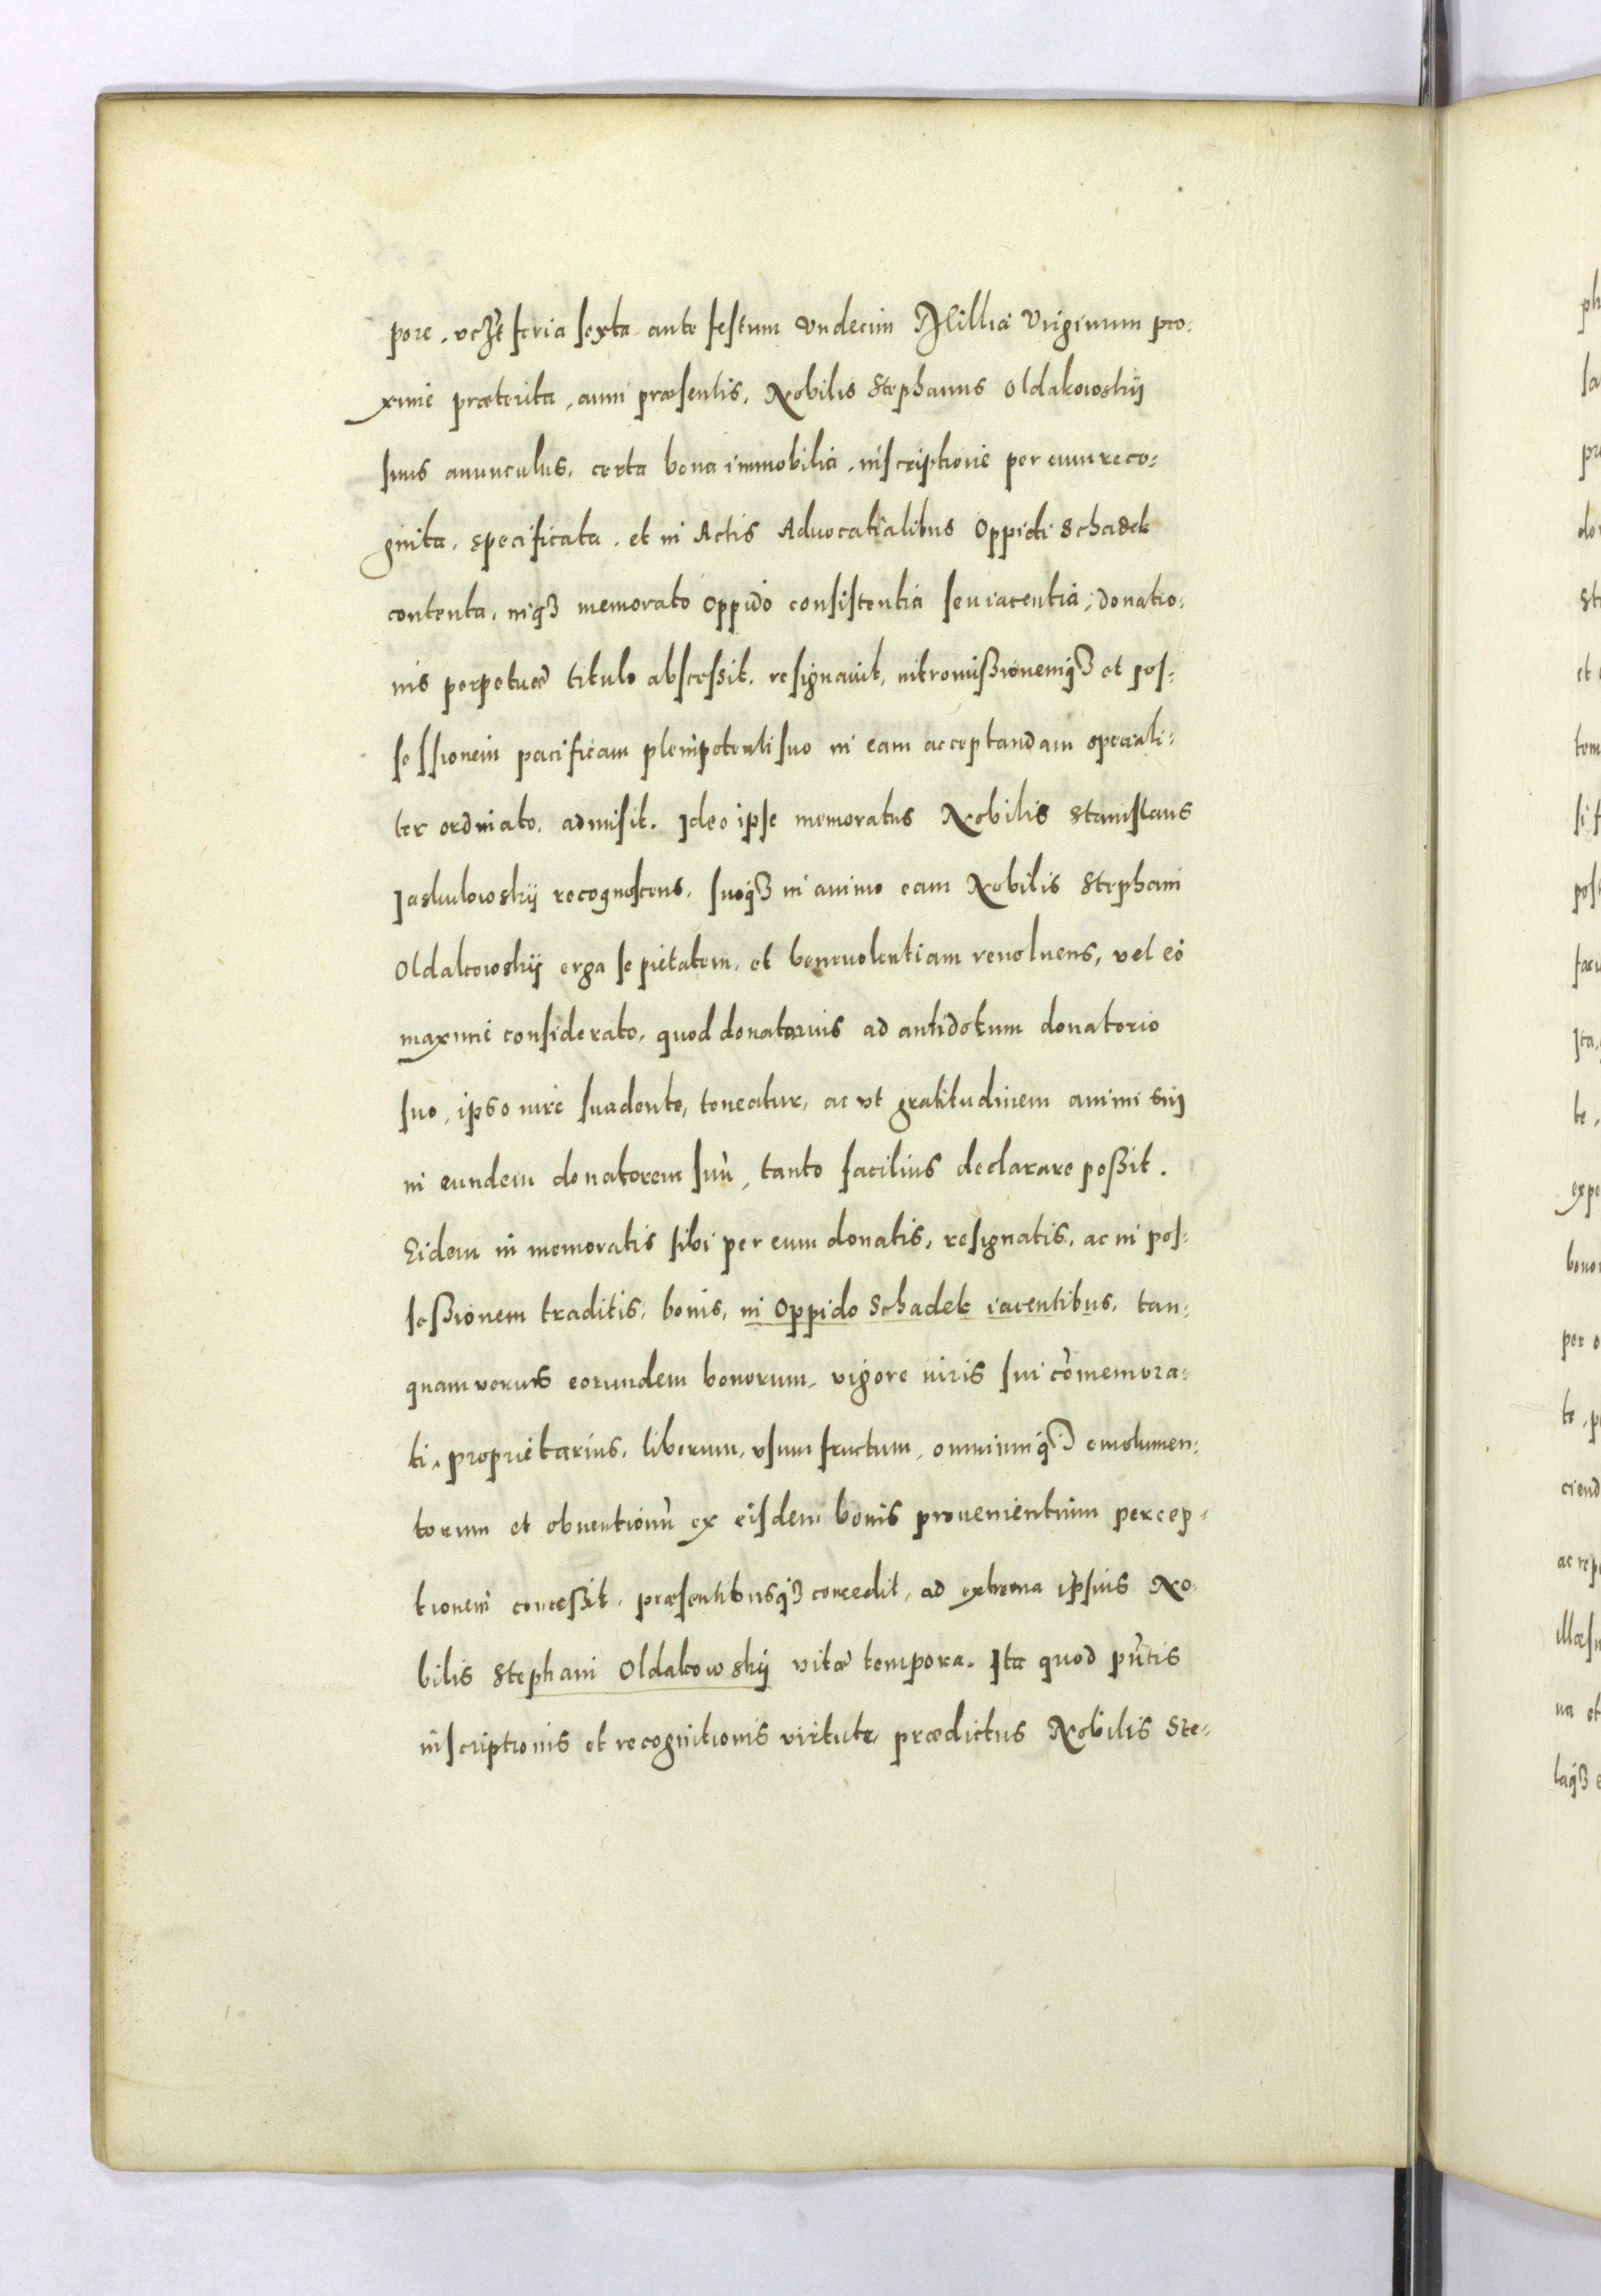 pore, vczt feria sexta ante festum Vndecim Millia Virginum pro⸗
xime præterita, anni præsentis, Nobilis Stephanus Oldakowskij
suus auunculus, certa bona immobilia, inscriptione per eum reco⸗
gnita, specificata, et in Actis Aduocatialibus Oppidi Schadek
contenta, inqꝫ memorato Oppido consistentia seu iacentia, donatio⸗
nis perpetuæ titulo abscessit, resignauit, intromißionemqꝫ et pos⸗
sessionem pacificam plenipotenti suo in eam acceptandam speciali⸗
ter ordinato, admisit. Ideo ipse memoratus Nobilis Stanislaus
Jaskulowskij recognoscens, suoqꝫ in animo eam Nobilis Stephani
Oldakowskij erga se pietatem, et beneuolentiam reuoluens, vel eo
maxime considerato, quod donatarius ad antidotum donatorio
suo, ipso iure suadente, teneatur, ac vt gratitudinem animi sui
in eundem donatorem suũ, tanto facilius declarare poßit.
Eidem in memoratis sibi per eum donatis, resignatis, ac in pos⸗
seßionem traditis, bonis, in Oppido Schadek iacentibus, tan⸗
quam verus eorundem bonorum, vigore iuris sui cõmemora⸗
ti, proprietarius, liberum, vsumfructum, omniumqꝫ emolumen⸗
torum et obuentionũ ex eisdem bonis prouenientium percep⸗
tionem conceßit, præsentibusqꝫ concedit, ad extrema ipsius No⸗
bilis Stephani Oldakowskij vitæ tempora. Ita quod pñtis
inscriptionis et recognitionis virtute, prædictus Nobilis Ste⸗